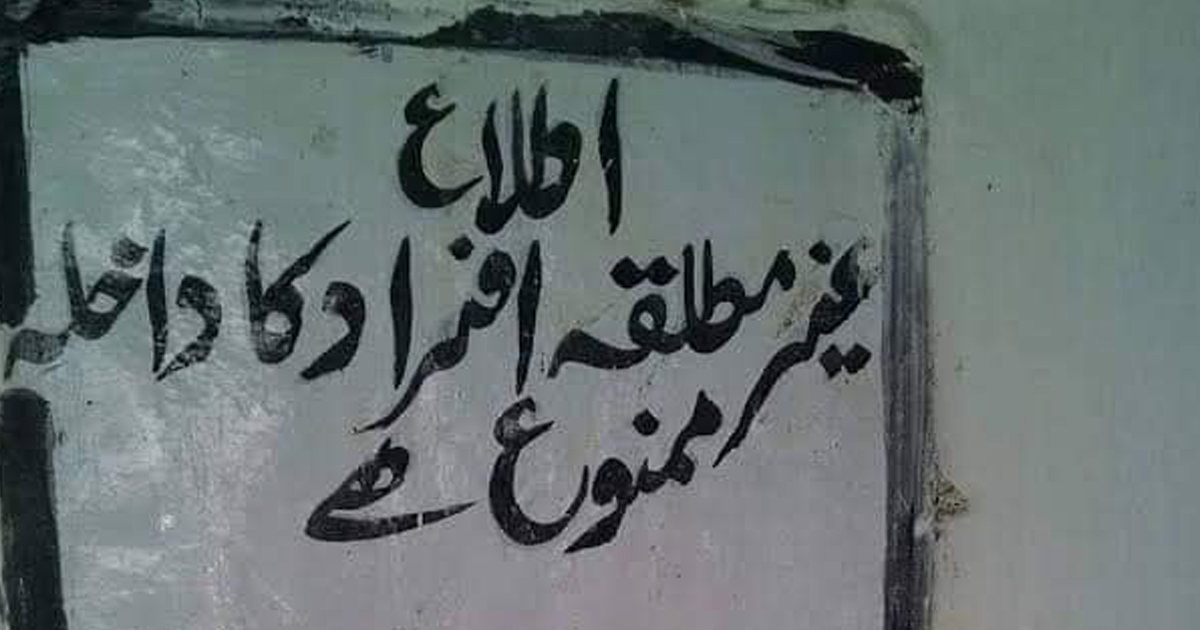 اطلاع
غیر مطلقہ افراد کا داخلہ
ممنوع ھے